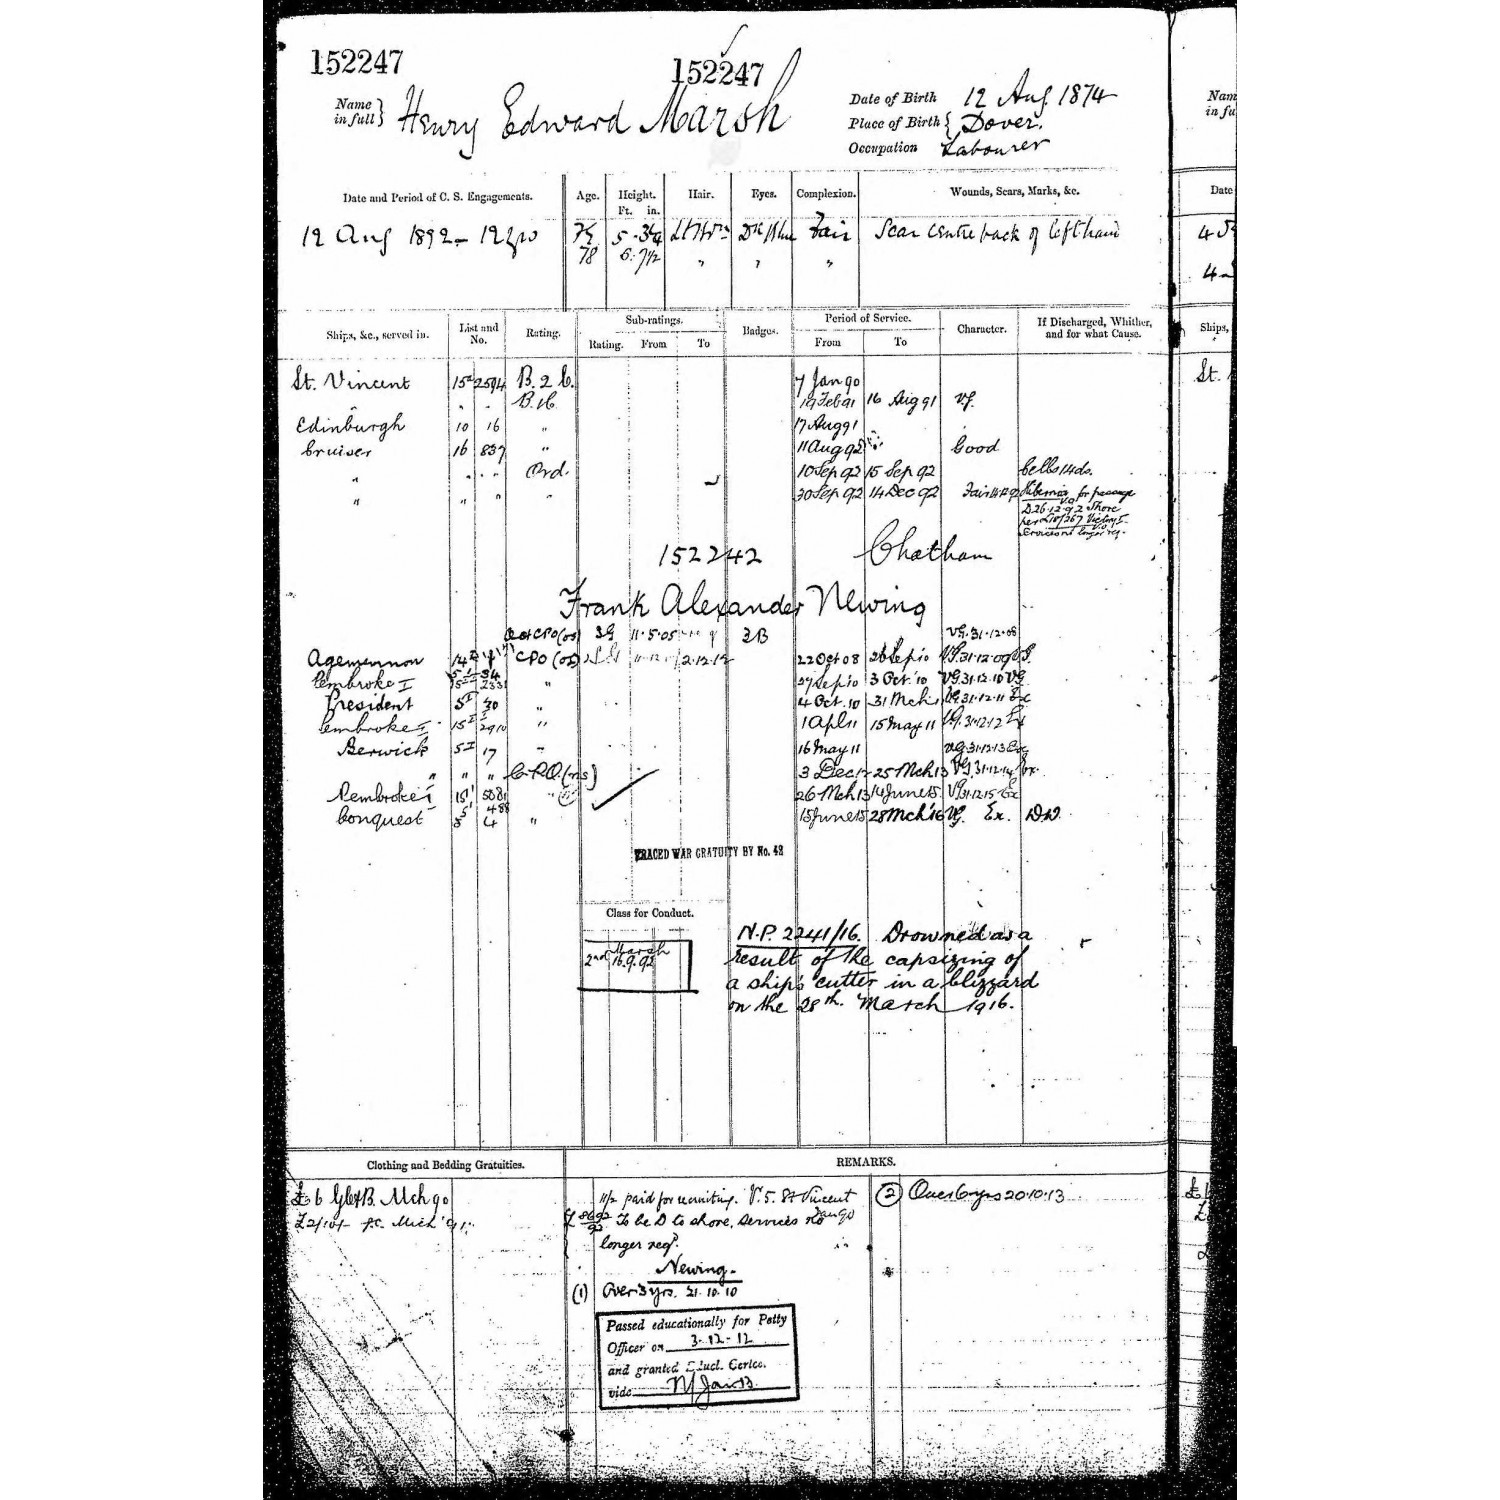 152247
152247
Name in full } Henry Edward Marsh
Date of Birth 12 Aug. 1874
Place of Birth { Dover.
Occupation Labourer
Date and Period of C. S. Engagements. Age. Height. Ft. in. Hair. Eyes. Complexion. Wounds, Scars, Marks, &c.
12 Aug 1892 - 12 yrs 5 - Fair Scar centre back of left hand
18 5. 7 1/2 " " "
Ships, &c., served in. List and No. Rating. Sub-ratings. Rating. From To Badges. Period of Service. From To Character. If Discharged, Whither, and for what Cause.
St. Vincent 15 2594 B. 2 C. 7 Jan 90
" " " B. 1C 19 Feb 91 16 Aug 91 V.G.
Edinburgh 10 16 " 17 Aug 91
Cruiser 16 837 " 11 Aug 92 Good
" " " Ord. 10 Sep 92 15 Sep 92 Cells 14 ds.
" " " " 30 Sep 92 14 Dec 92 Fair Hibernia for passage
D. 26.12.92 Shore
per
Services no longer req.
152242 Chatham
Frank Alexander Newing
CPO (os) 3G 11.5.05 3B V.G. 31.12.08
Agamemnon CPO (os) 2.12.12 22 Oct 08 26 Sep 10 V.G. 31.12.09
Pembroke I 15 2331 " 27 Sep 10 3 Oct 10 V.G. 31.12.10 VG
President 5 I 30 " 4 Oct. 10 31 Mch 11 V.G. 31.12.11 Ex
Pembroke I 15 I 2910 " 1 Apl 11 15 May 11 V.G. 31.12.12 Ex
Berwick 5 I 17 " 16 May 11 V.G. 31.12.13 Ex
" " " C.P.O. (ns) 3 Dec 12 25 Mch 13 V.G. 31.12.14 Ex.
Pembroke I 15 I 5081 " 26 Mch 13 14 June 15 V.G. 31.12.15 Ex
Conquest 5 4 " 15 June 15 28 Mch '16 V.G. Ex. D.D.
TRACED WAR GRATUITY BY No. 42
Class for Conduct.
Marsh
2nd 16.9.92
N.P. 2241/16. Drowned as a
result of the capsizing of
a ship's cutter in a blizzard
on the 28th. March 1916.
Clothing and Bedding Gratuities. REMARKS.
£6 G & B. Mch 90
£2/10/- Mch '91
11/2 paid for recruiting. V. 5. St Vincent Jan 90
To be D to shore, services no
longer reqd.
Newing.
(1) Over 3 yrs. 21.10.10
(2) Over 6 yrs 20.10.13
Passed educationally for Petty
Officer on 3-12-12
and granted Educl. Certce.
vide
Nam
in fu
Date
Ships,
St.